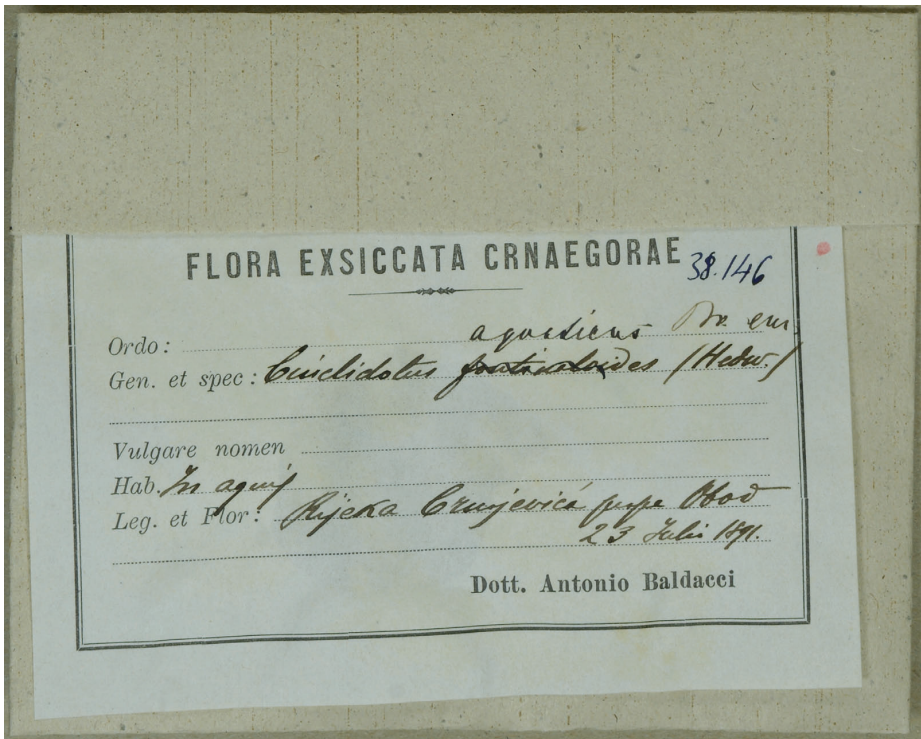 FLORA EXSICCATA CRNAEGORAE 38.146
Ordo: aquaticus Br. eur.
Gen. et spec: Cinclidotus fontinaloides (Hedw.)
Vulgare nomen
Hab. In aquis
Leg. et Flor: Rijeka Crnojevića prope Obod
23 Julii 1891.
Dott. Antonio Baldacci